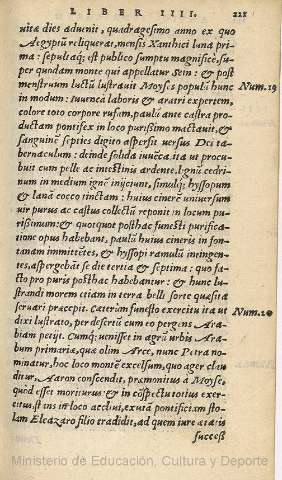 LIBER IIII. 221
uitæ dies aduenit, quadragesimo anno ex quo
Aegyptū reliquerat, mensis Xanthici luna pri-
ma: sepultaq́; est publico sumptu magnificè, su-
per quodam monte qui appellatur Sein: & post
menstruum luctū lustrauit Moyses populū hunc Num.19
in modum: Iuuenca laboris & aratri expertem,
colore toto corpore rufam, paulū ante castra pro-
ductam pontifex in loco purissimo mactauit, &
sanguinē septies digito aspersit versus Dei ta-
bernaculum: deinde solida iuuēca ita ut procu-
buit cum pelle ac intestinis ardente, lignū cedri-
num in medium ignē inijciunt, simulq́; hyssopum
& lanā cocco tinctam: huius cinerē uniuersum
uir purus ac castus collectū reponit in locum pu-
rissimum: & quotquot posthac funesti purifica-
tione opus habebant, paulū huius cineris in fon-
tanam immittētes, & hyssopi ramulū intingen-
tes, aspergebāt se die tertia & septima: quo fa-
cto pro puris posthac habebantur: & hunc lu-
strandi morem etiam in terra belli sorte quæsita
seruari præcepit. Caeterùm funesto exercitu ita ut Num.20
dixi lustrato, per desertū cum eo pergens Ara-
biam petijt. Cumq́; uenisset in agrū urbis Ara-
bum primariæ, quæ olim Arce, nunc Petra no-
minatur, hoc loco montē excelsum, quo ager clau
ditur, Aaron conscendit, præmonitus a Moyse,
quòd esset moriturus & in cōspectu totius exer-
citus, stans in loco accliui, exuta pontificiam sto-
lam Eleazaro filio tradidit, ad quem iure ætatis
succeß
Ministerio de Educación, Cultura y Deporte